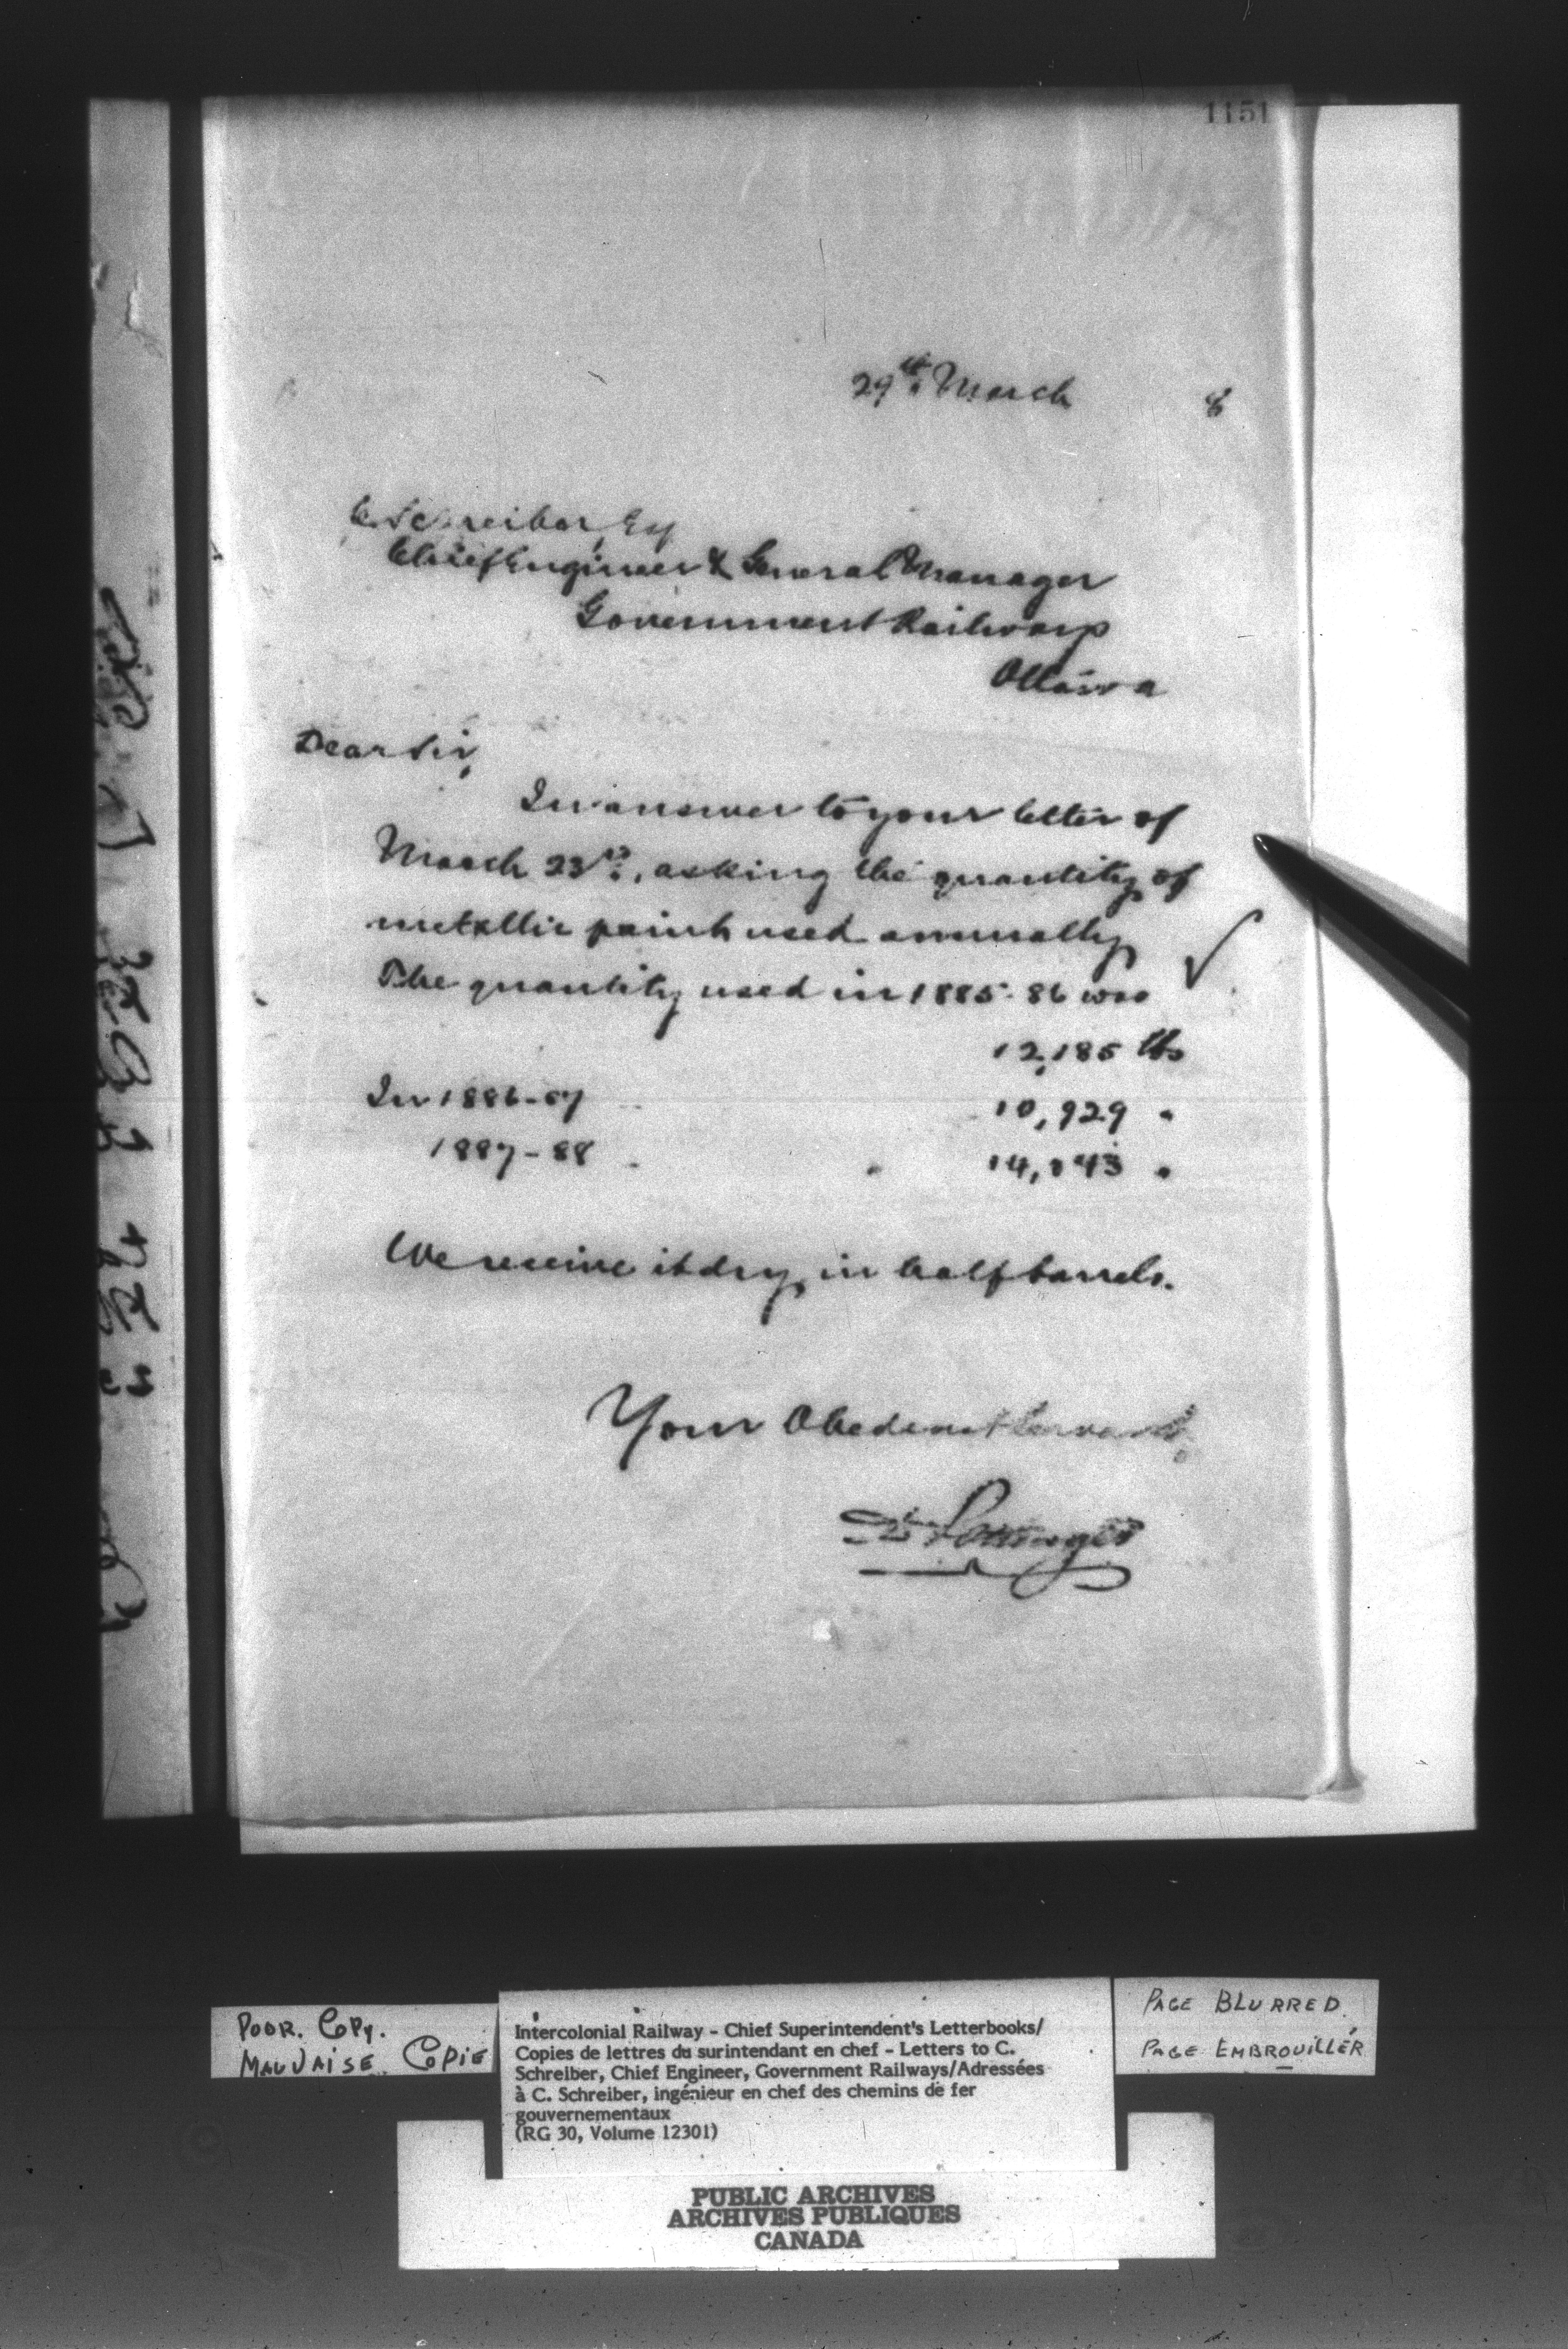 1151
29th March 8
C. Schreiber, Esq
Chief Engineer & General Manager
Government Railways
Ottawa
Dear Sir,
In answer to your letter of
March 23rd, asking the quantity of
metallic paint used annually
The quantity used in 1885-86 was
12,185 lbs
In 1886-87 10,929 "
1887-88 " 14,143 "
We receive it dry, in half barrels.
Your Obedient Servant,
D Pottinger
POOR. COPY.
MAUVAISE COPIE
Intercolonial Railway - Chief Superintendent's Letterbooks/
Copies de lettres du surintendant en chef - Letters to C.
Schreiber, Chief Engineer, Government Railways/Adressées
à C. Schreiber, ingénieur en chef des chemins de fer
gouvernementaux
(RG 30, Volume 12301)
PAGE BLURRED
PAGE EMBROUILLÉR
PUBLIC ARCHIVES
ARCHIVES PUBLIQUES
CANADA